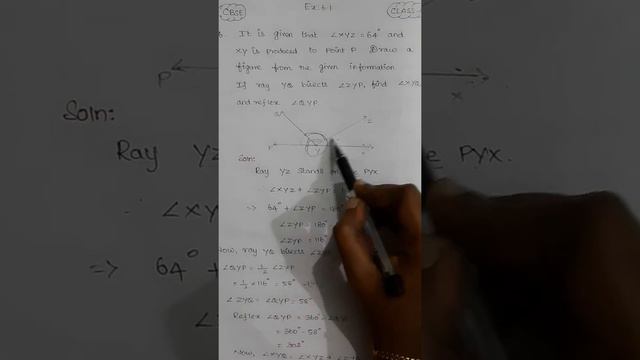 CBSE Ex:6.1 CLASS-
6. It is given that ∠XYZ = 64° and
XY is produced to point P. Draw a
figure from the given information
If ray YQ bisects ∠ZYP, find ∠XYQ
and reflex ∠QYP.
P Y X Z
Soln:
Ray YZ stands PYX
∴ ∠XYZ + ∠ZYP =
⇒ 64° + ∠ZYP = 180°
∠ZYP = 180°
∠ZYP = 116°
Now, ray YQ bisects
∠QYP = 1/2 ∠ZYP
= 1/2 × 116° = 58°
∠ZYQ = ∠QYP = 58°
Reflex ∠QYP = 360° - ∠QYP
= 360° - 58°
= 302°
Now, ∠XYQ = ∠XYZ +
P
Soln:
Ray YZ
∴ ∠XY
⇒ 64° +
∠
X
PYX.